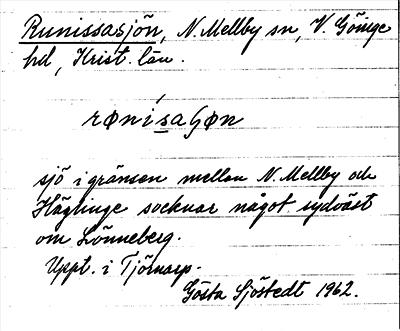 Runissasjön, N. Mellby sn, V. Göinge
hd, Krist. län.
rønísaʃøn
sjö i gränsen mellan N. Mellby och
Häglinge socknar något sydväst
om Lönneberg.
Uppt. i Tjörnarp.
Gösta Sjöstedt 1962.